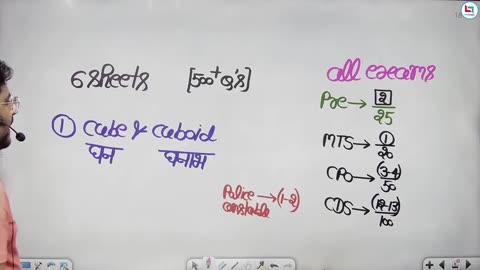 6 sheets [500+ Q's]
① Cube & Cuboid
घन घनाभ
Police → (1-2)
constable
all exams
Pre → 2/25
MTS → ①/20
CPO → (3-4)/50
CDS → (12-13)/100